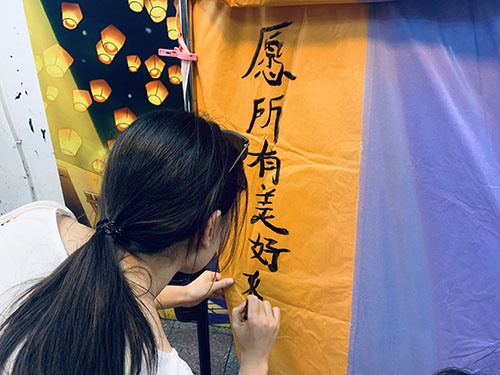 愿所有美好